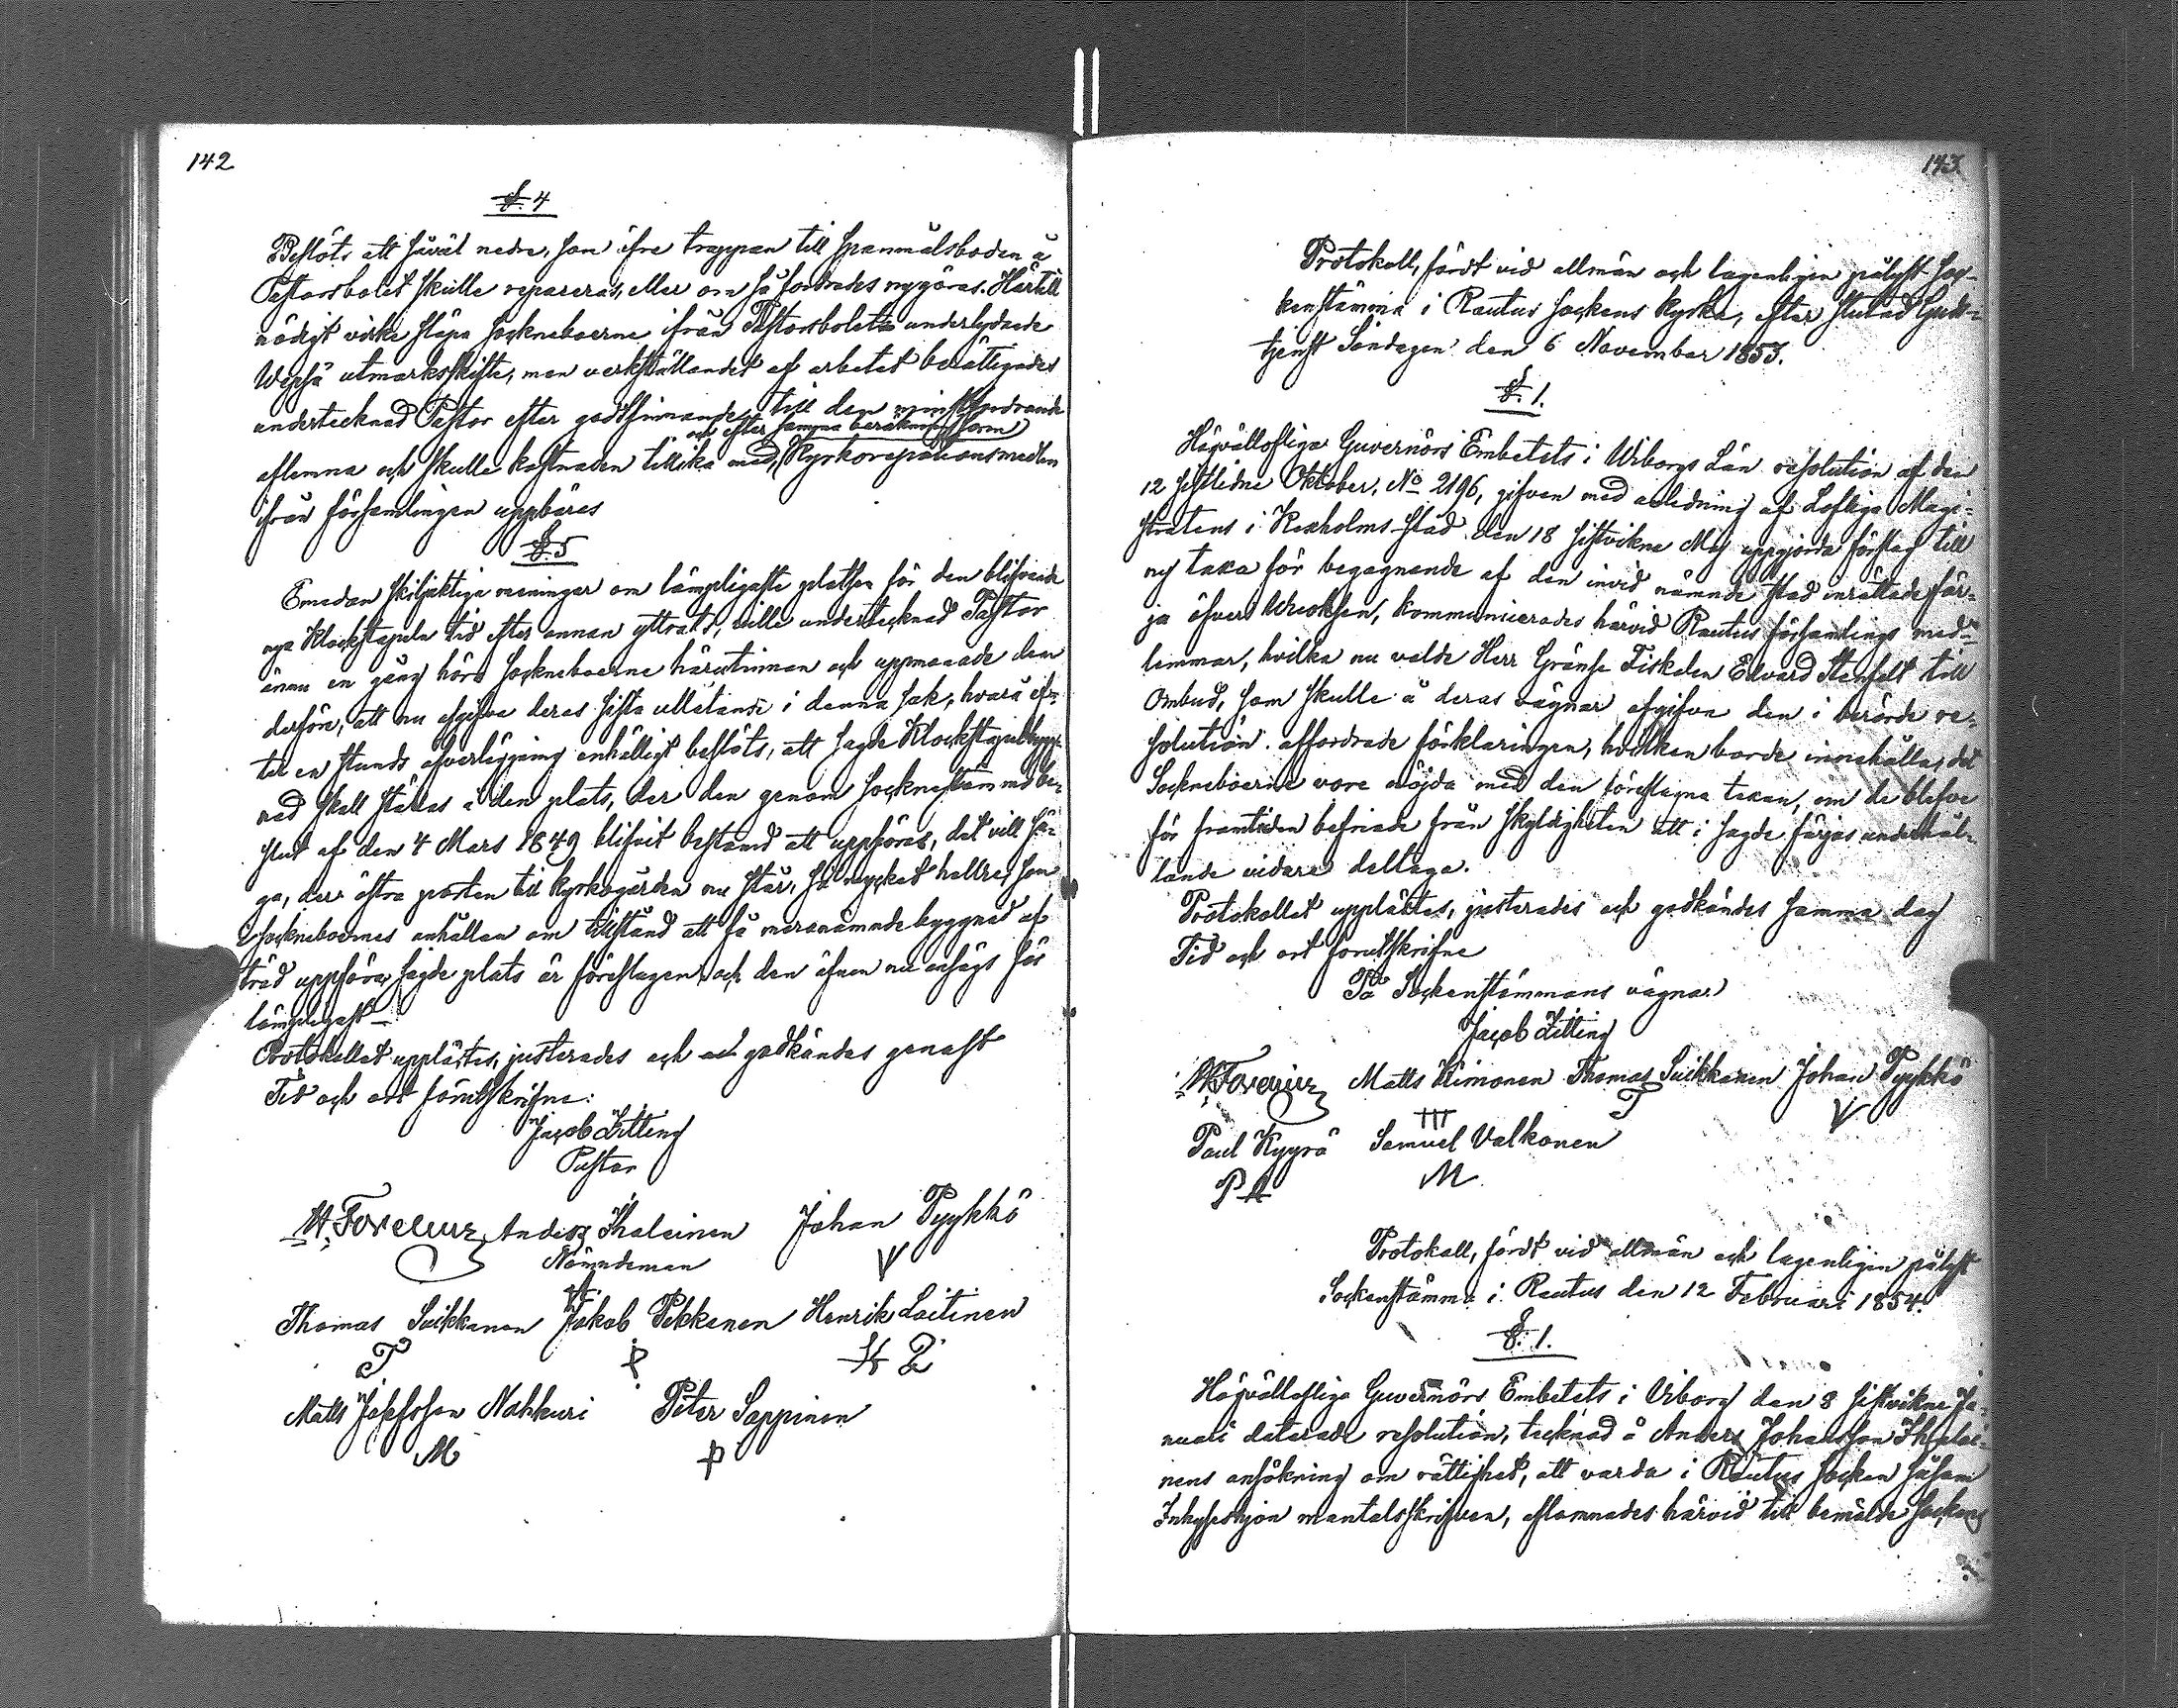 142
§. 4
Beslöts att såväl nedre, som öfre trappan till spanmålsboden å
Pastorsbolet skulle repareras, eller om så fordrades nygöras. Härtill
nödigt virke släpa sockneboerne ifrån Pastorsbolets underlydande
utmarksskifte, men verkställandet af arbetet berättigades
undertecknad Pastor efter godtfinnande till den minstfordrande
och efter samma beräkning som
aflemna och skulle kostnaden tillika med, Kyrkoreparationsmedlen
ifrån församlingen uppbäras
§. 5
Emedan skiljaktiga meningar om lämpligaste platsen för den blifvande
nya Klockstapeln tid efter annan yttrats, ville undertecknad Pastor
ännu en gång höra sockneboerne härutinnan och uppmanade dem
derföre, att nu afgifva deras sista utlåtande i denna sak, hvarå ef-
ter en stunds öfverläggning enhälligt beslöts, att sagde Klockstapelbygg-
nad skall ställas å den plats, der den genom sockenstämmobe-
slut af den 4 Mars 1849 blifvit bestämd att uppföras, det vill sä-
ga, der östra porten till kyrkogården nu står, så mycket hellre, som
i sockneboernes anhållan om tillstånd att få meranämnde byggnad af
träd uppföra, sagde plats är föreslagen och den äfven nu ansågs för
lämpligast_
Protokollet upplästes, justerades och godkändes genast
Tid och ort förutskrifne:
Jacob Zitting
Pastor
A. Forelius Anders Ihalainen Johan Pyykkö
Nämndeman
Thomas Suikkanen Jakob Pekkanen Henrik Laitinen
T P H L
Matts Josefsson Nahkuri Peter Lappinen
M P
143
Protokoll, fördt vid allmän och lagenligen pålyst soc-
kenstämma i Rautus sockens kyrka, efter slutad Guds-
tjenst Söndagen den 6 November 1853.
§. 1.
Högvällofliga Guvernörs Embetets i Wiborgs Län resolution af den
12 sistlidne Oktober, No 2196, gifven med anledning af Lofliga Magi-
stratens i Kexholms stad den 18 sistvikne Maj uppgjorda förslag till
ny taxa för begagnande af den invid nämnde stad inrättade fär-
ja öfver Wuoksen, kommunicerades härvid Rautus församlings med-
lemmar, hvilka nu valde Herr Gränse Fiskalen Edvard till
Ombud, som skulle å deras vägnar afgifva den i berörde re-
solution affordrade förklaringen, hvilken borde innehålla, det
Sockneboerne vore nöjda med den föreslagna taxan, om de blefve
för framtiden befriade från skyldigheten att i sagde färjas underhål-
lande vidare deltaga.
Protokollet upplästes, justerades och godkändes samma dag
Tid och ort förutskrifne
På Sockenstämmans vägnar
Jacob Zitting
A. Forelius Matts Kimonen Thomas Suikkanen Johan Pyykkö
T
Paul Kyyrä Samuel Valkonen
P M
Protokoll, fördt vid allmän och lagenligen pålyst
Sockenstämma i Rautus den 12 Februari 1854.
§. 1.
Högvällofliga Guvernörs Embetets i Viborg den 8 sistvikne Ja-
nuari daterade resolution, tecknad å Anders Johansson Ihalai-
nens ansökning om rättighet, att varda i Rautus socken såsom
Inhyseshjon mantalsskrifven, aflemnades härvid till bemälde sockens